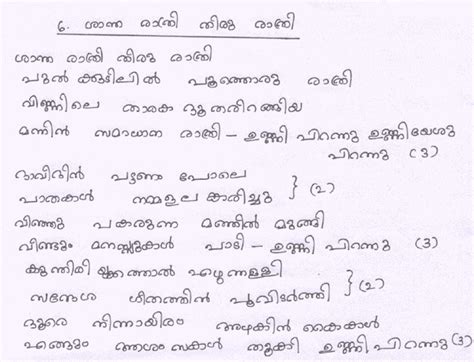 6. ശാന്ത രാത്രി തിരു രാത്രി
ശാന്ത രാത്രി തിരു രാത്രി
പുൽ ക്കുടിലിൽ പൂത്തൊരു രാത്രി
വിണ്ണിലെ താരക ദൂതരിറങ്ങിയ
മണ്ണിൻ സമാധാന രാത്രി – ഉണ്ണി പിറന്നു ഉണ്ണിയേശു
പിറന്നു (3)
ദാവീദിൻ പട്ടണം പോലെ
പാതകൾ നമ്മളലങ്കരിച്ചു } (2)
വീഞ്ഞു പകരുന്ന മണ്ണിൽ മുങ്ങി
വീണ്ടും മനസ്സുകൾ പാടി – ഉണ്ണി പിറന്നു (3)
കുന്തിരിക്കത്താൽ എഴുന്നള്ളി
സന്ദേശ ഗീതത്തിൻ പൂവിടർത്തി } (2)
ദൂരെ നിന്നായിരം അഴകിൻ കൈകൾ
എങ്ങും തൂകി ഉണ്ണി പിറന്നു (3)